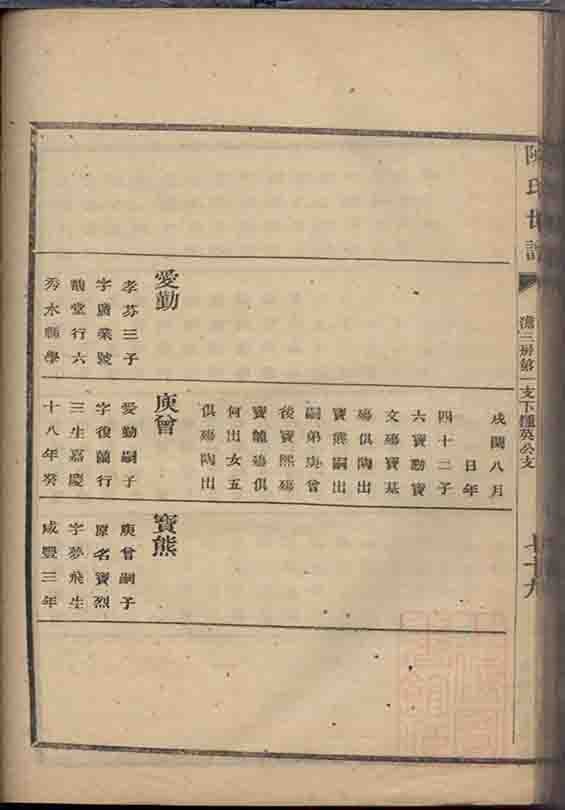 陳氏世譜
澹三房第一支下鍾英公支
七十九
愛勤
孝芬三子
字廣業號
韻堂行六
秀水縣學
戌閏八月
日年
四十二子
六寶勤寶
文殤寶基
殤俱陶出
寶熊嗣出
嗣弟庚曾
後寶熙殤
寶鑪殤俱
何出女五
俱殤陶出
庚曾
愛勤嗣子
字復蘭行
三生嘉慶
十八年癸
寶熊
庚曾嗣子
原名寶烈
字夢飛生
咸豐三年